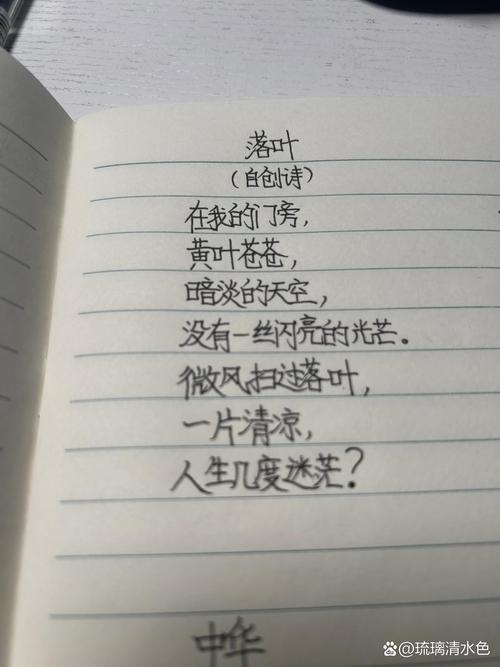 落叶
(自创诗)
在我的门旁，
黄叶苍苍，
暗淡的天空，
没有一丝闪亮的光芒。
微风扫过落叶，
一片清凉，
人生几度迷茫？
中华
@琉璃清水色